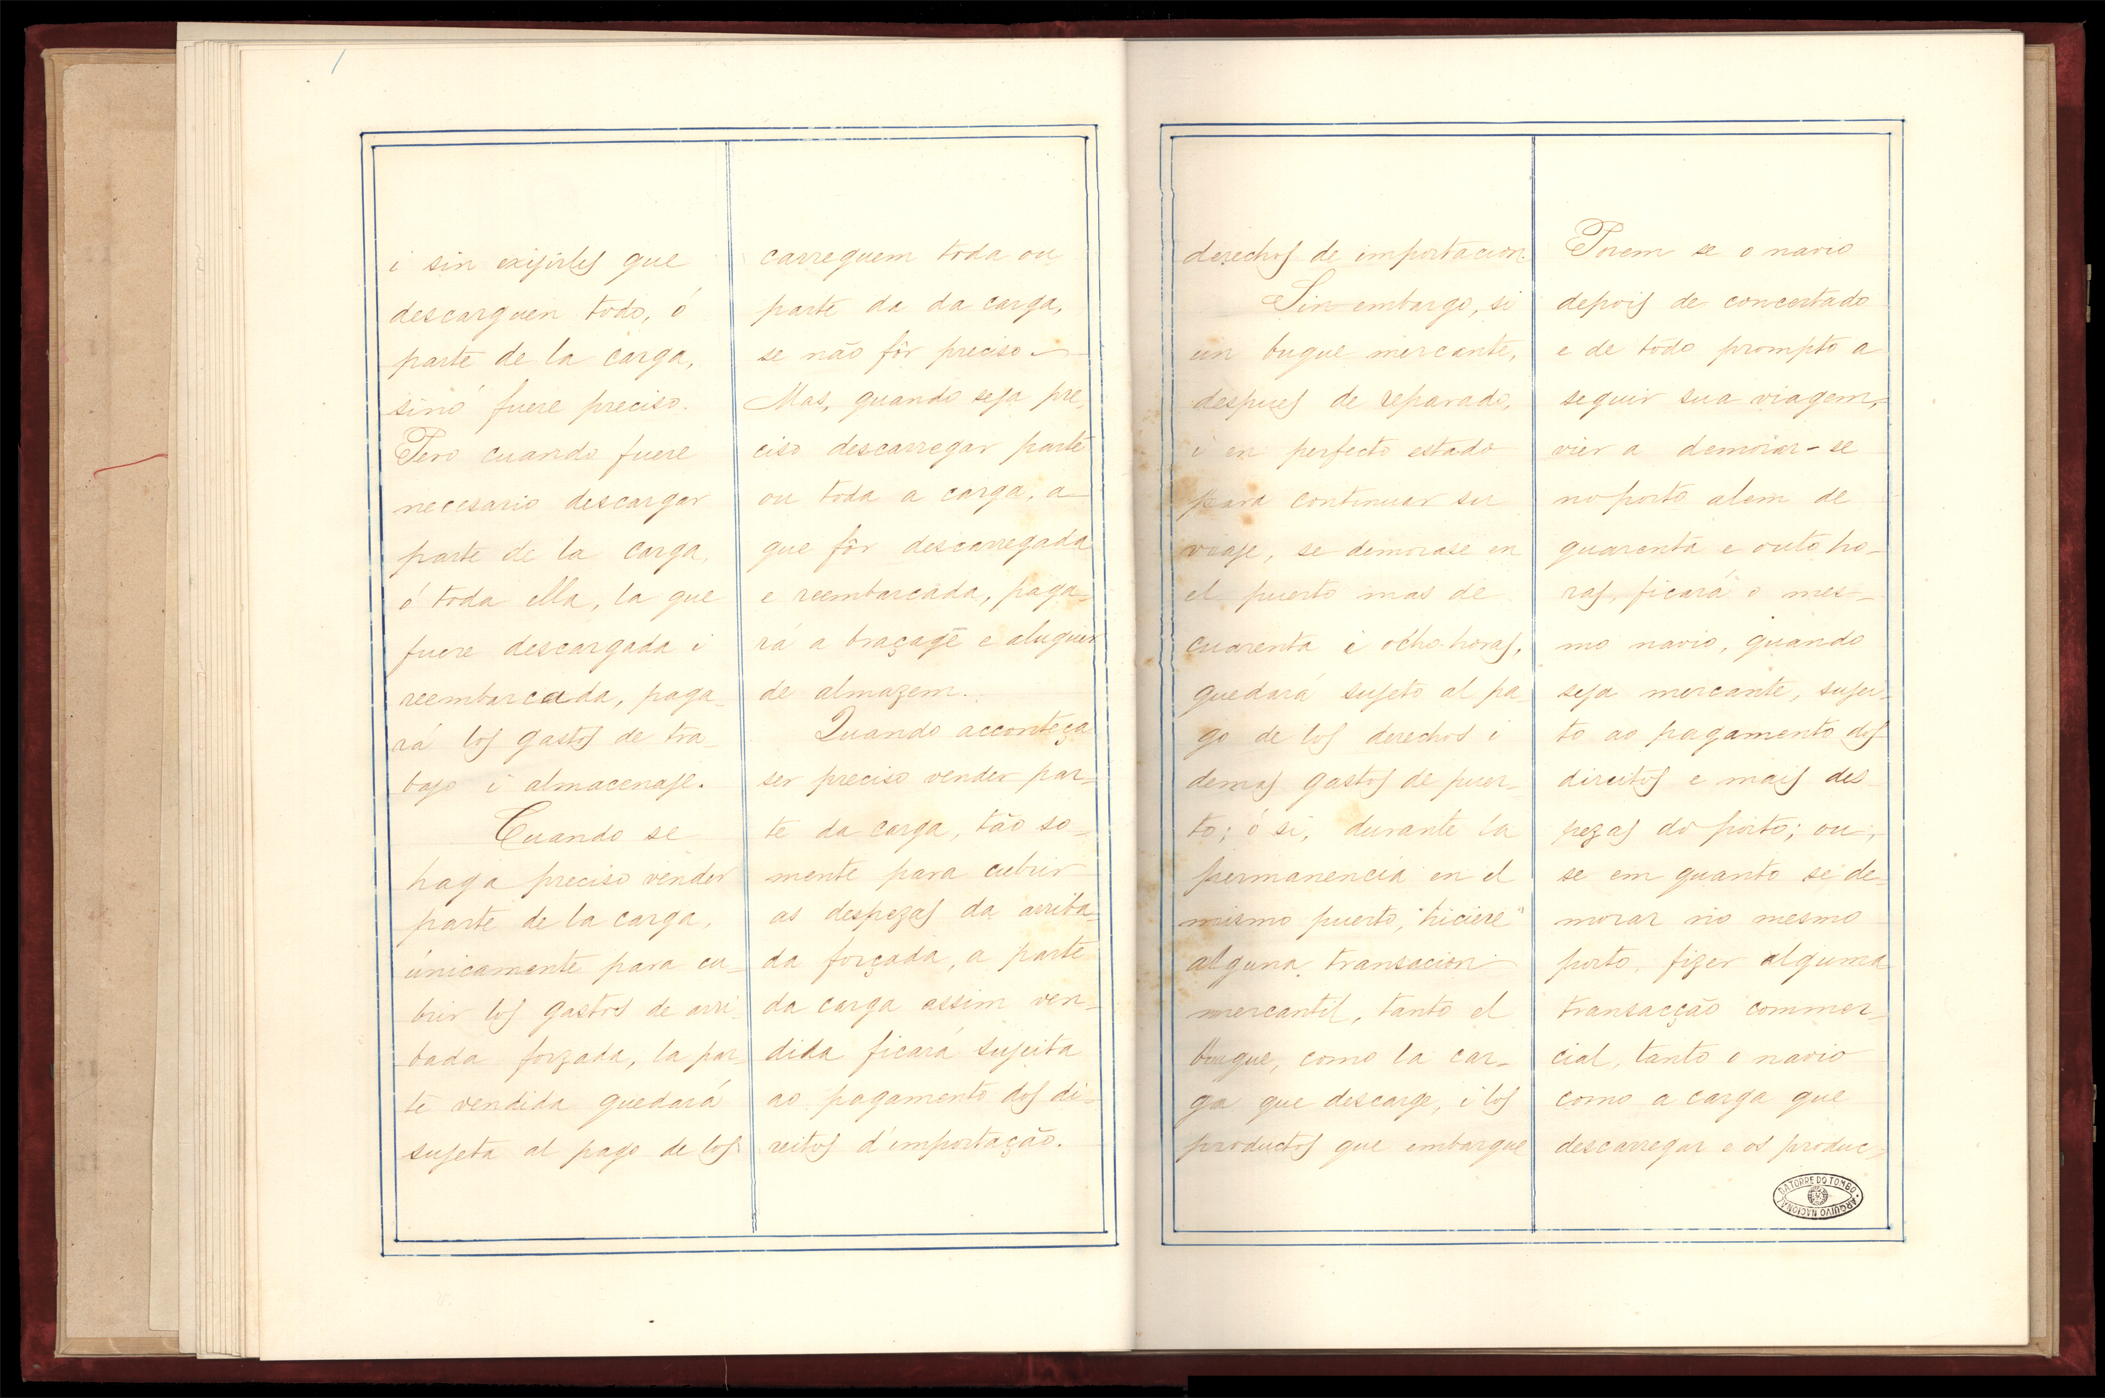 i sin exijirles que
descarguen todo, ó
parte de la carga,
sinó fuere preciso.
Pero cuando fuere
necesario descargar
parte de la carga,
ó toda ella, la que
fuere descargada i
reembarcada, paga-
rá los gastos de tra-
bajo i almacenaje.
Cuando se
haga preciso vender
parte de la carga,
únicamente para cu-
brir los gastos de arri-
bada forzada, la par-
te vendida quedará
sujeta al pago de los
carreguem toda ou
parte da da carga,
se não fôr preciso.
Mas, quando seja pre-
ciso descarregar parte
ou toda a carga, a
que fôr descarregada
e reembarcada, paga-
rá a braçagẽ e aluguer
de almazem.
Quando acconteça
ser preciso vender par-
te da carga, tão so-
mente para cubrir
as despezas da arriba-
da forçada, a parte
da carga assim ven-
dida ficará sujeita
ao pagamento dos di-
reitos d'importação.
derechos de importacion
Sin embargo, si
un buque mercante,
despues de reparado,
i en perfecto estado
para continuar su
viaje, se demorase en
el puerto mas de
cuarenta i ocho horas,
quedará sujeto al pa-
go de los derechos i
demas gastos de puer-
to; ó si, durante la
permanencia en el
mismo puerto, "hiciere"
alguna transacion
mercantil, tanto el
buque, como la car-
ga que descarge, i los
productos que embarque
Porem se o navio
depois de concertado
e de todo prompto a
seguir sua viagem,
vier a demorar-se
no porto alem de
quarenta e outo ho-
ras, ficará o mes-
mo navio, quando
seja mercante, sujei-
to ao pagamento dos
direitos e mais des-
pezas do porto; ou,
se em quanto se de-
morar no mesmo
porto, fizer alguma
transacção commer-
cial, tanto o navio
como a carga que
descarregar e os produc-
DA TORRE DO TOMBO • ARQUIVO NACIONAL